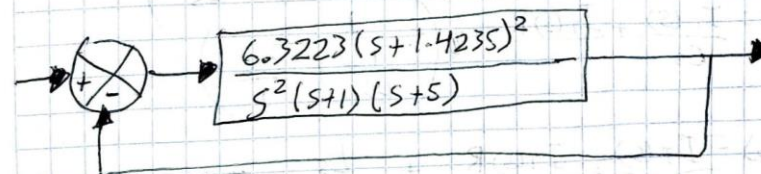 6.3223(s+1.4235)²
s²(s+1)(s+5)
+
-